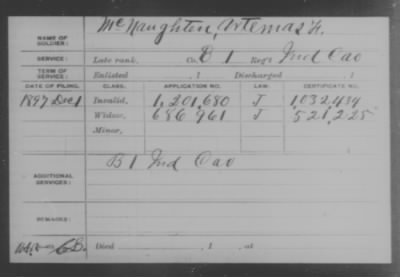 NAME OF SOLDIER: McNaughten, Artemas H.
SERVICE: Late rank, Co. D 1 Reg't Ind Cav
TERM OF SERVICE: Enlisted , 1 Discharged , 1
DATE OF FILING. CLASS. APPLICATION NO. LAW. CERTIFICATE NO.
1897 Dec 1 Invalid, 1,201,680 J 1032,434
Widow, 686,961 J 521,225
Minor,
ADDITIONAL SERVICES: B 1 Ind Cav
REMARKS:
Died , 1 , at